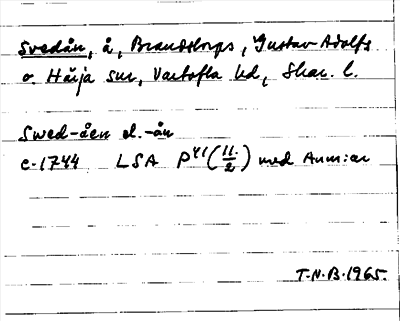 Svedån, å, Brandstorps, Gustav Adolfs
o. Härja snr, Vartofta hd, Skar. l.
Swed-åen el. -ån
c. 1744 LSA P41 (11/2) med Anm:ar
T.N.B. 1965.